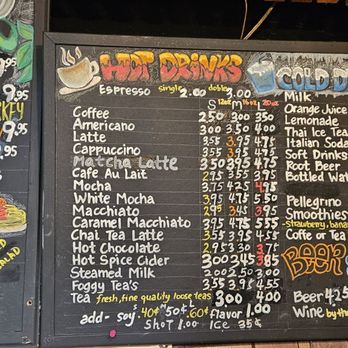 HOT DRINKS
Espresso single 2.00 doble 3.00
S 12oz M 16oz L 20oz
Coffee 2.50 300 350
Americano
Latte 3.55 3.95 4.75
Cappuccino 3.55 3.95 4.75
Matcha Latte 3.50 3.95 4.75
Cafe Au Lait
Mocha 3.75 4.25 4.95
White Mocha 3.95 4.75 5.50
Macchiato 2.95 3.45 3.95
Caramel Macchiato 3.95 4.75 5.55
Chai Tea Latte
Hot Chocolate
Hot Spice Cider 300 345 385
Steamed Milk 2.00 2.50 3.00
Foggy Tea's 3.55 3.95 4.55
Tea fresh, fine quality loose teas 300 400
add- soy .40¢ M 50¢ L .60¢ flavor 1.00
Shot 1.00 Ice 35¢
COLD D
Milk
Orange Juice
Lemonade
Thai Ice Tea
Italian Soda
Soft Drinks
Root Beer
Bottled Wat
Pellegrino
Smoothies
-Strawberry, banan
Coffe or Tea
BEER
Beer 4.25
Wine by th